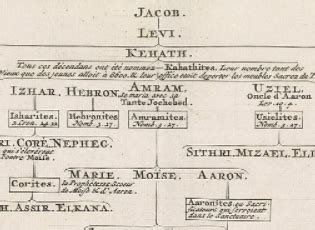 JACOB.
LEVI.
KEHATH.
Tous ces décendans ont été nommez Kahathites. Leur nombre tant des
Vieux que des jeunes alloit à 8600. & leur office étoit de porter les meubles Sacrez du T
IZHAR. HEBRON. AMRAM. UZIEL.
Se maria avec sa Oncle d'Aaron
Tante Jochebed. Lev. 10. 4.
Isharites. Hebronites Amramites Usielites
Nomb. 3. 27. Nomb. 3. 27. Nomb. 3. 27.
RI. CORÉ. NEPHEG. SITHRI. MIZAEL. ELI
qui s'éleverent
contre Moïse.
MARIE. MOÏSE. AARON.
Corites. la Prophetesse Soeur
de Moïse & d'Aaron.
Aaronites ou Sacri-
ficateurs qui servoient
dans le Sanctuaire.
H. ASSIR. ELKANA.